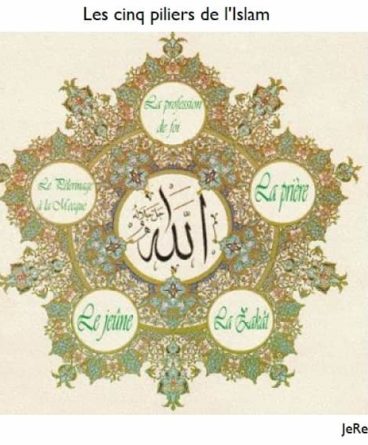 Les cinq piliers de l'Islam
La profession
de foi
Le Pélerinage
à la Mecque
الله
جل جلاله
La prière
Le jeûne
La Zakât
JeRe